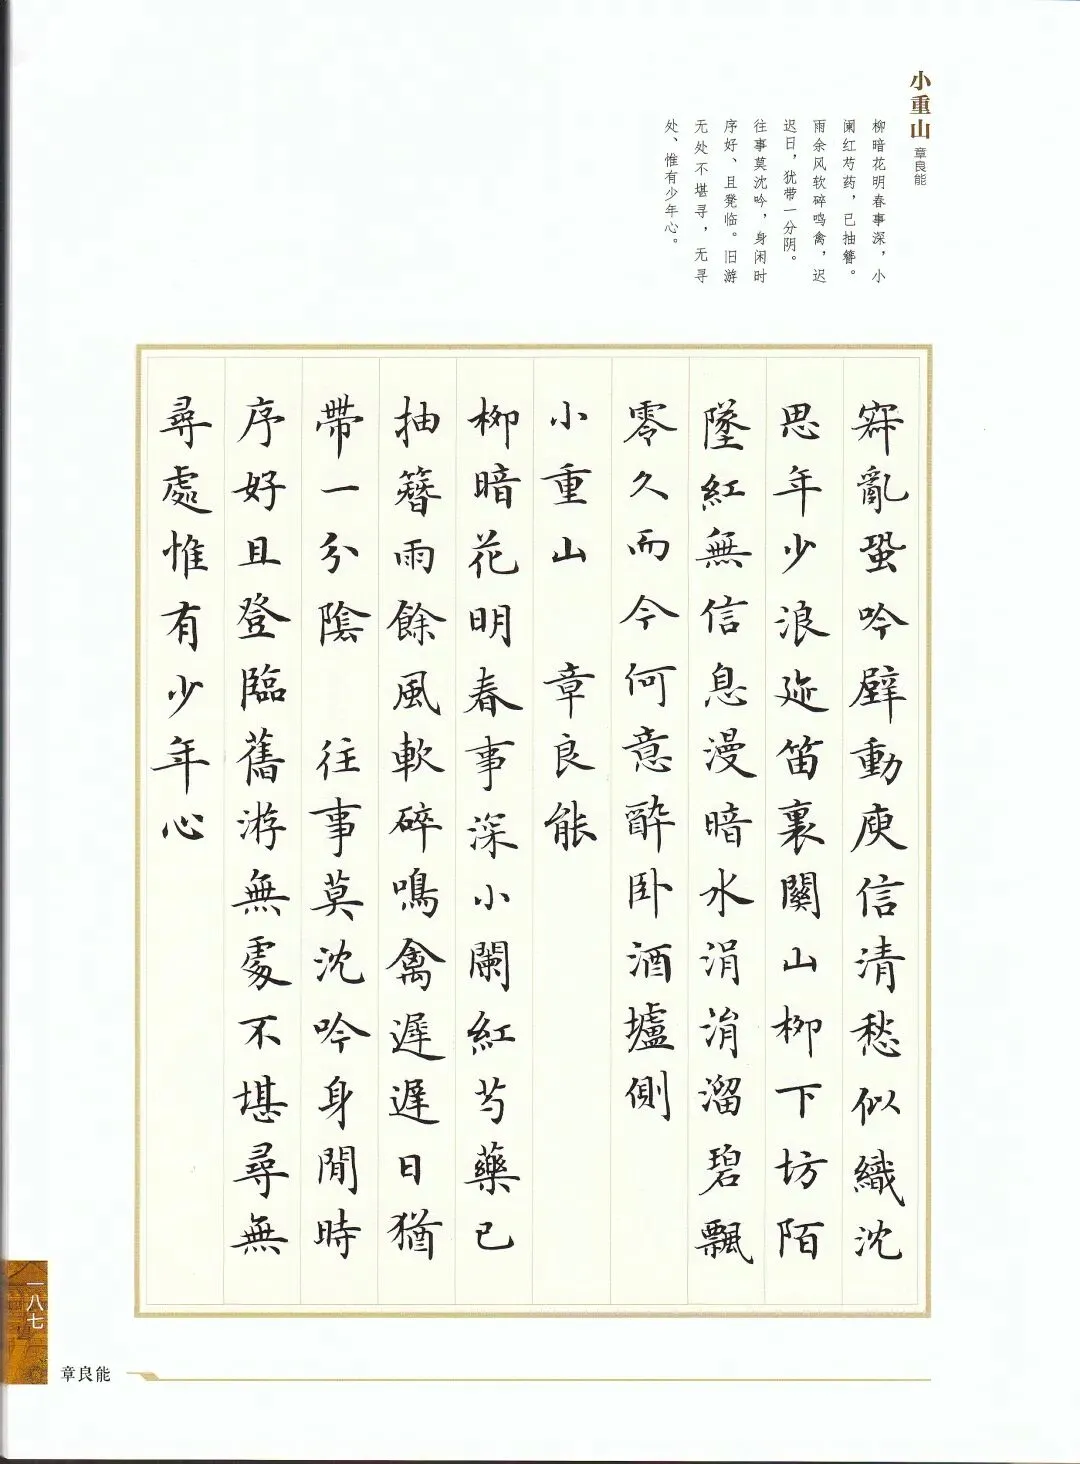 小重山 章良能
柳暗花明春事深，小
阑红芍药，已抽簪。
雨余风软碎鸣禽，迟
迟日，犹带一分阴。
往事莫沈吟，身闲时
序好、且凳临。旧游
无处不堪寻，无寻
处、惟有少年心。
寂亂蛩吟壁動庾信清愁似織沈
思年少浪迹笛裏關山柳下坊陌
墜紅無信息漫暗水涓涓溜碧飄
零久而今何意醉卧酒壚側
小重山 章良能
柳暗花明春事深小闌紅芍藥已
抽簪雨餘風軟碎鳴禽遲遲日猶
帶一分陰 往事莫沈吟身閒時
序好且登臨舊游無處不堪尋無
尋處惟有少年心
一八七
章良能